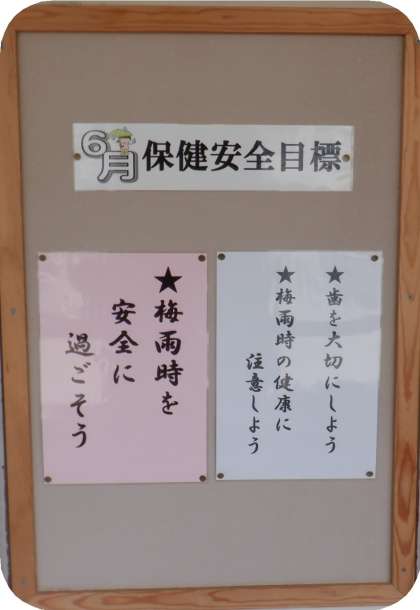 6月 保健安全目標
★歯を大切にしよう
★梅雨時の健康に
注意しよう
★梅雨時を
安全に
過ごそう